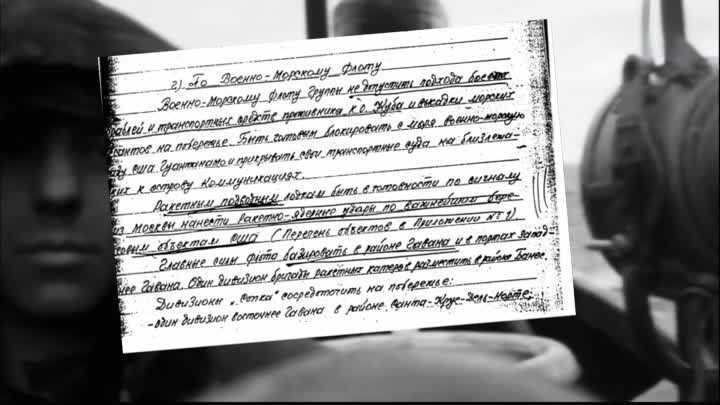 2) По Военно-Морскому Флоту
Военно-Морскому Флоту Группы не допустить подхода боевых
раблей и транспортных средств противника к о. Куба и высадки морских
сантов на побережье. Быть готовым блокировать с моря военно-морскую
зу США Гуантанамо и прикрывать свои транспортные суда на близлежа-
щих к острову коммуникациях.
Ракетным подводным лодкам быть в готовности по сигналу
из Москвы нанести ракетно-ядерные удары по важнейшим бере-
говым объектам США (Перечень объектов в Приложении №1).
Главные силы флота базировать в районе Гавана и в портах запад-
нее Гавана. Один дивизион бригады ракетных катеров разместить в районе Банес.
Дивизионы „Сопка" сосредоточить на побережье:
- один дивизион восточнее Гавана в районе Санта-Крус-Дель-Норте;